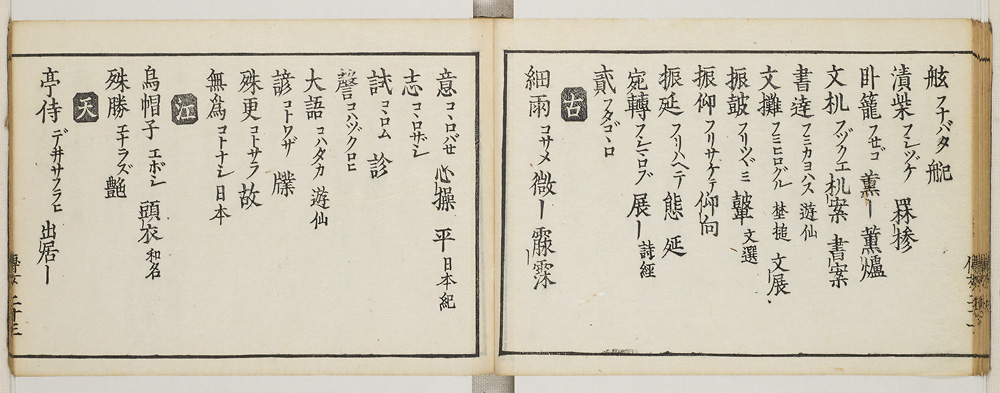 舷 フナバタ 舥
漬柴 フシヅケ 罧椮
卧籠 フセゴ 薫ー 薫爐
文机 フヅクエ 机案 書案
書達 フミカヨハス 遊仙
文攤 フミヒログル 埜搥 文展
振皷 フリツヾミ 鼗 文選
振仰 フリサケテ 仰向
振延 フリハヘテ 態 延
宛轉 フシマロブ 展ー 詩経
貳 フタゴヽロ
古
細雨 コサメ 微ー 霢霂
意 コヽロバセ 心操 平 日本紀
志 コヽロザシ
試 コヽロム 診
謦 コハヅクロヒ
大語 コハタカ 遊仙
諺 コトワザ 牒
殊更 コトサラ 故
無為 コトナシ 日本
江
烏帽子 エボシ 頭衣 和名
殊勝 エナラズ 艶
天
亭侍 デ井サフラヒ 出居ー
二十三